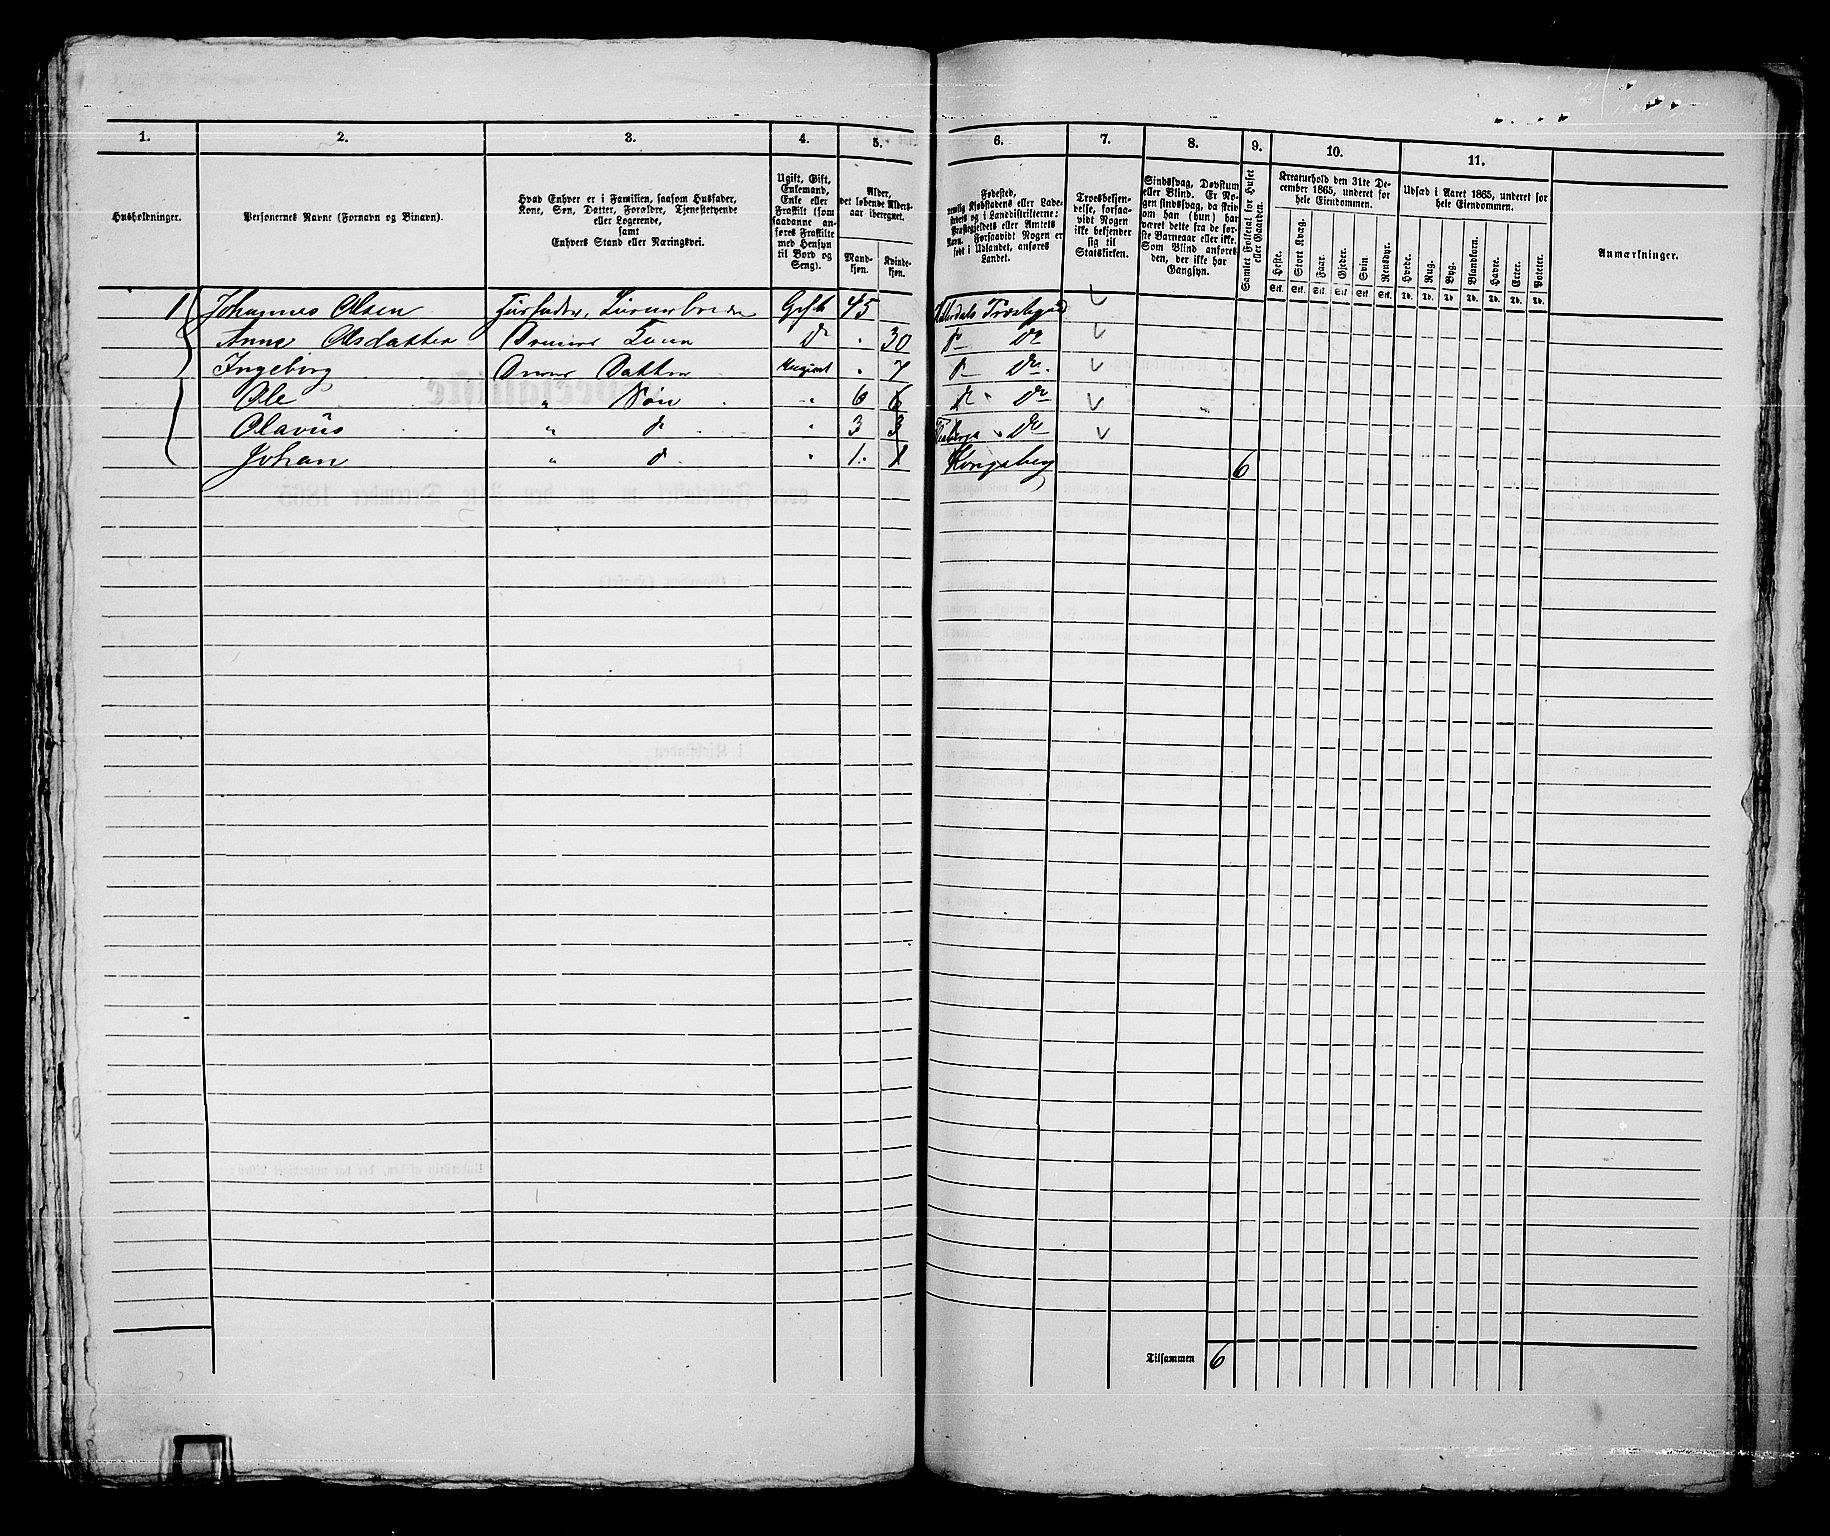 1. 2. 3. 4. 5. 6. 7. 8. 9. 10. 11.
Husholdninger.
Personernes Navne (Fornavn og Binavn).
Hvad Enhver er i Familien, saasom Husfader,
Kone, Søn, Datter, Forældre, Tjenestetyende
eller Logerende,
samt
Enhvers Stand eller Næringsvei.
Ugift, Gift,
Enkemand,
Enke eller
Fraskilt (som
saadanne an-
føres Fraskilte
med Hensyn
til Bord og
Seng).
Alder,
det løbende Alders-
aar iberegnet.
Mand-
kjøn.
Kvinde-
kjøn.
Fødested,
nemlig Kjøbstadens eller Lade-
stedets og i Landdistrikterne:
Præstegjeldets eller Amtets
Navn. Forsaavidt Nogen er
født i Udlandet, anføres
Landet.
Troesbekjen-
delse, forsaa-
vidt Nogen
ikke bekjender
sig til
Statskirken.
Sindssvag, Døvstum
eller Blind. Er No-
gen sindssvag, da skriv
om han (hun) har
været dette fra de før-
ste Barneaar eller ikke.
Som Blind anføres
den, der ikke har
Gangsyn.
Samlet Folketal for Huset
eller Gaarden.
Kreaturhold den 31te De-
cember 1865, underet for
hele Eiendommen.
Heste. Stort Kvæg. Faar. Gjeder. Svin. Rensdyr.
Stk. Stk. Stk. Stk. Stk. Stk.
Udsæd i Aaret 1865, underet for
hele Eiendommen.
Hvede. Rug. Byg. Blandkorn. Havre. Erter. Poteter.
Td. Td. Td. Td. Td. Td. Td.
Anmærkninger.
1 Johannes Olsen Gift 45
Anne Olsdatter Kone Do 30 Do Do
Ingeborg Datter Ugift 7 Do Do
Ole " Søn " 6 6 Do Do
Olavus " do " 3 3 Do
Johan " do " 1 1 Kongsberg 6
Tilsammen 6